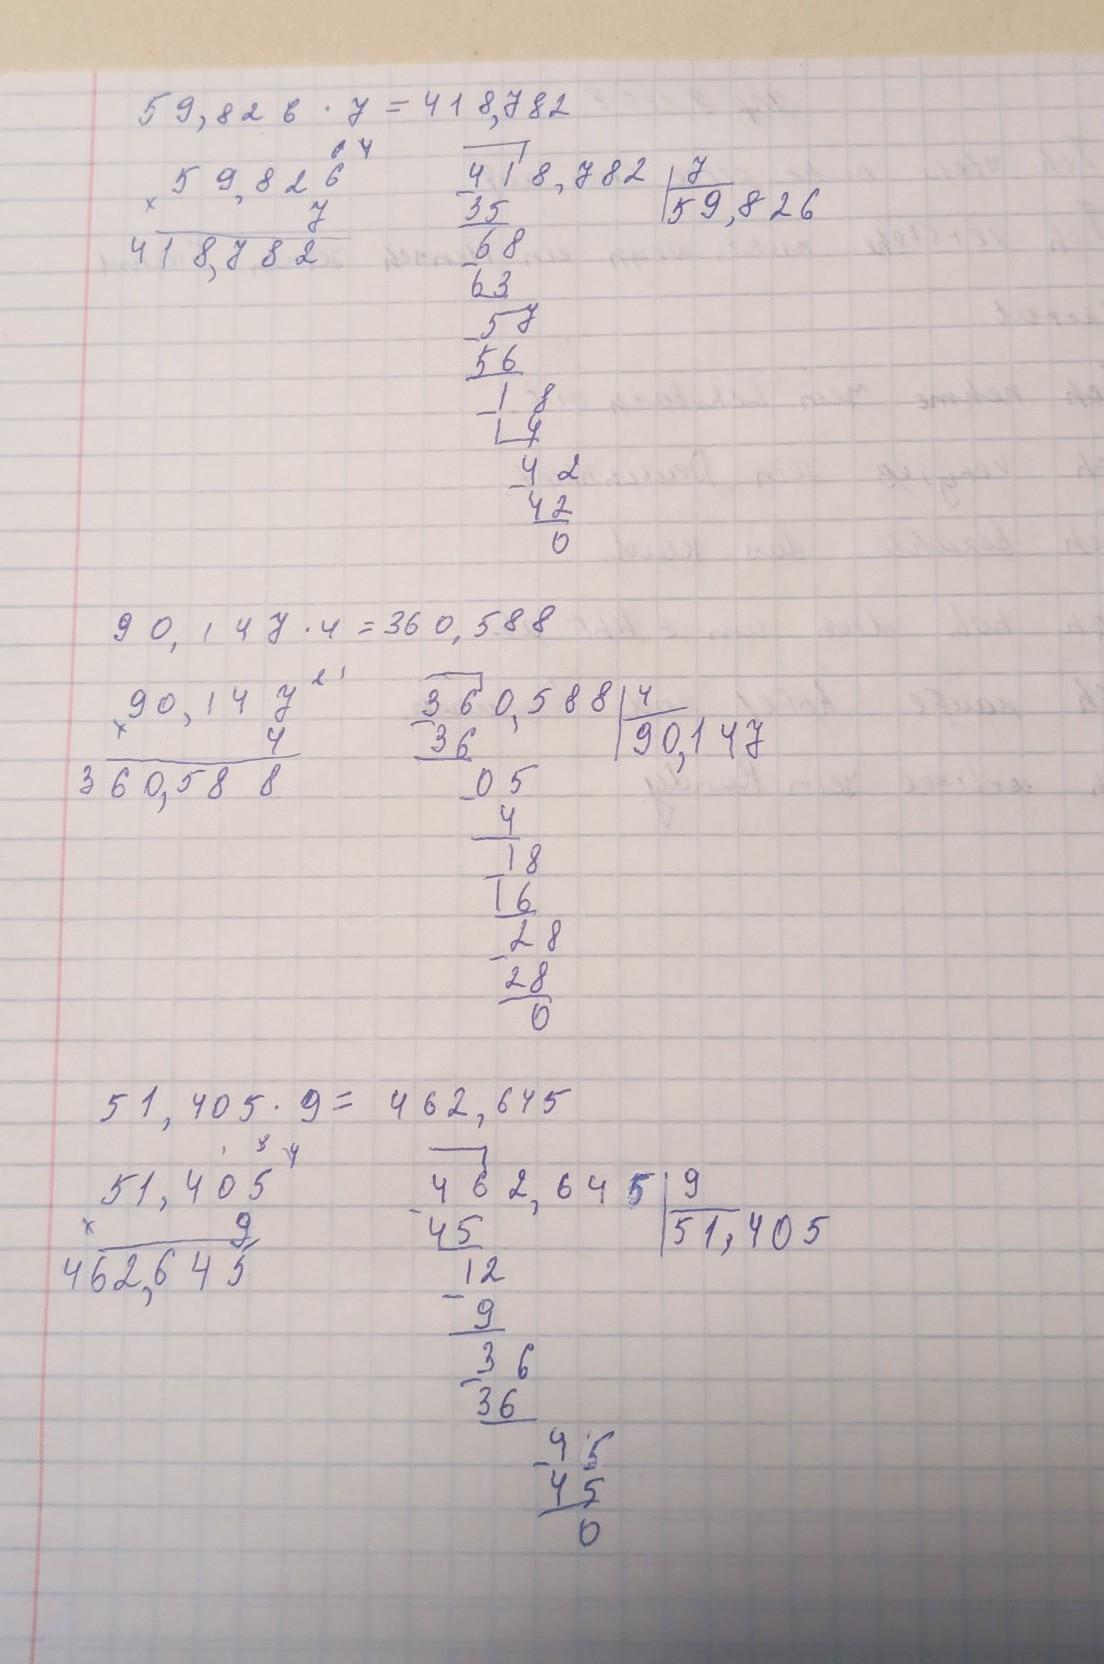 59,826 · 7 = 418,782
6 4
59,826
× 7
418,782
418,782 | 7
59,826
- 35
68
- 63
57
- 56
18
- 14
42
- 42
0
90,147 · 4 = 360,588
2 1
90,147
× 4
360,588
360,588 | 4
90,147
- 36
05
- 4
18
- 16
28
- 28
0
51,405 · 9 = 462,645
51,405
× 9
462,645
462,645 | 9
51,405
- 45
12
- 9
36
- 36
45
- 45
0